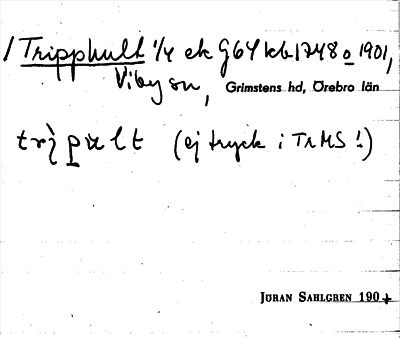 / Tripphult 1/4 ek G64 kb 1748 o 1901,
Viby sn, Grimstens hd, Örebro län
(ej tryck i TrMS!)
JÖRAN SAHLGREN 190